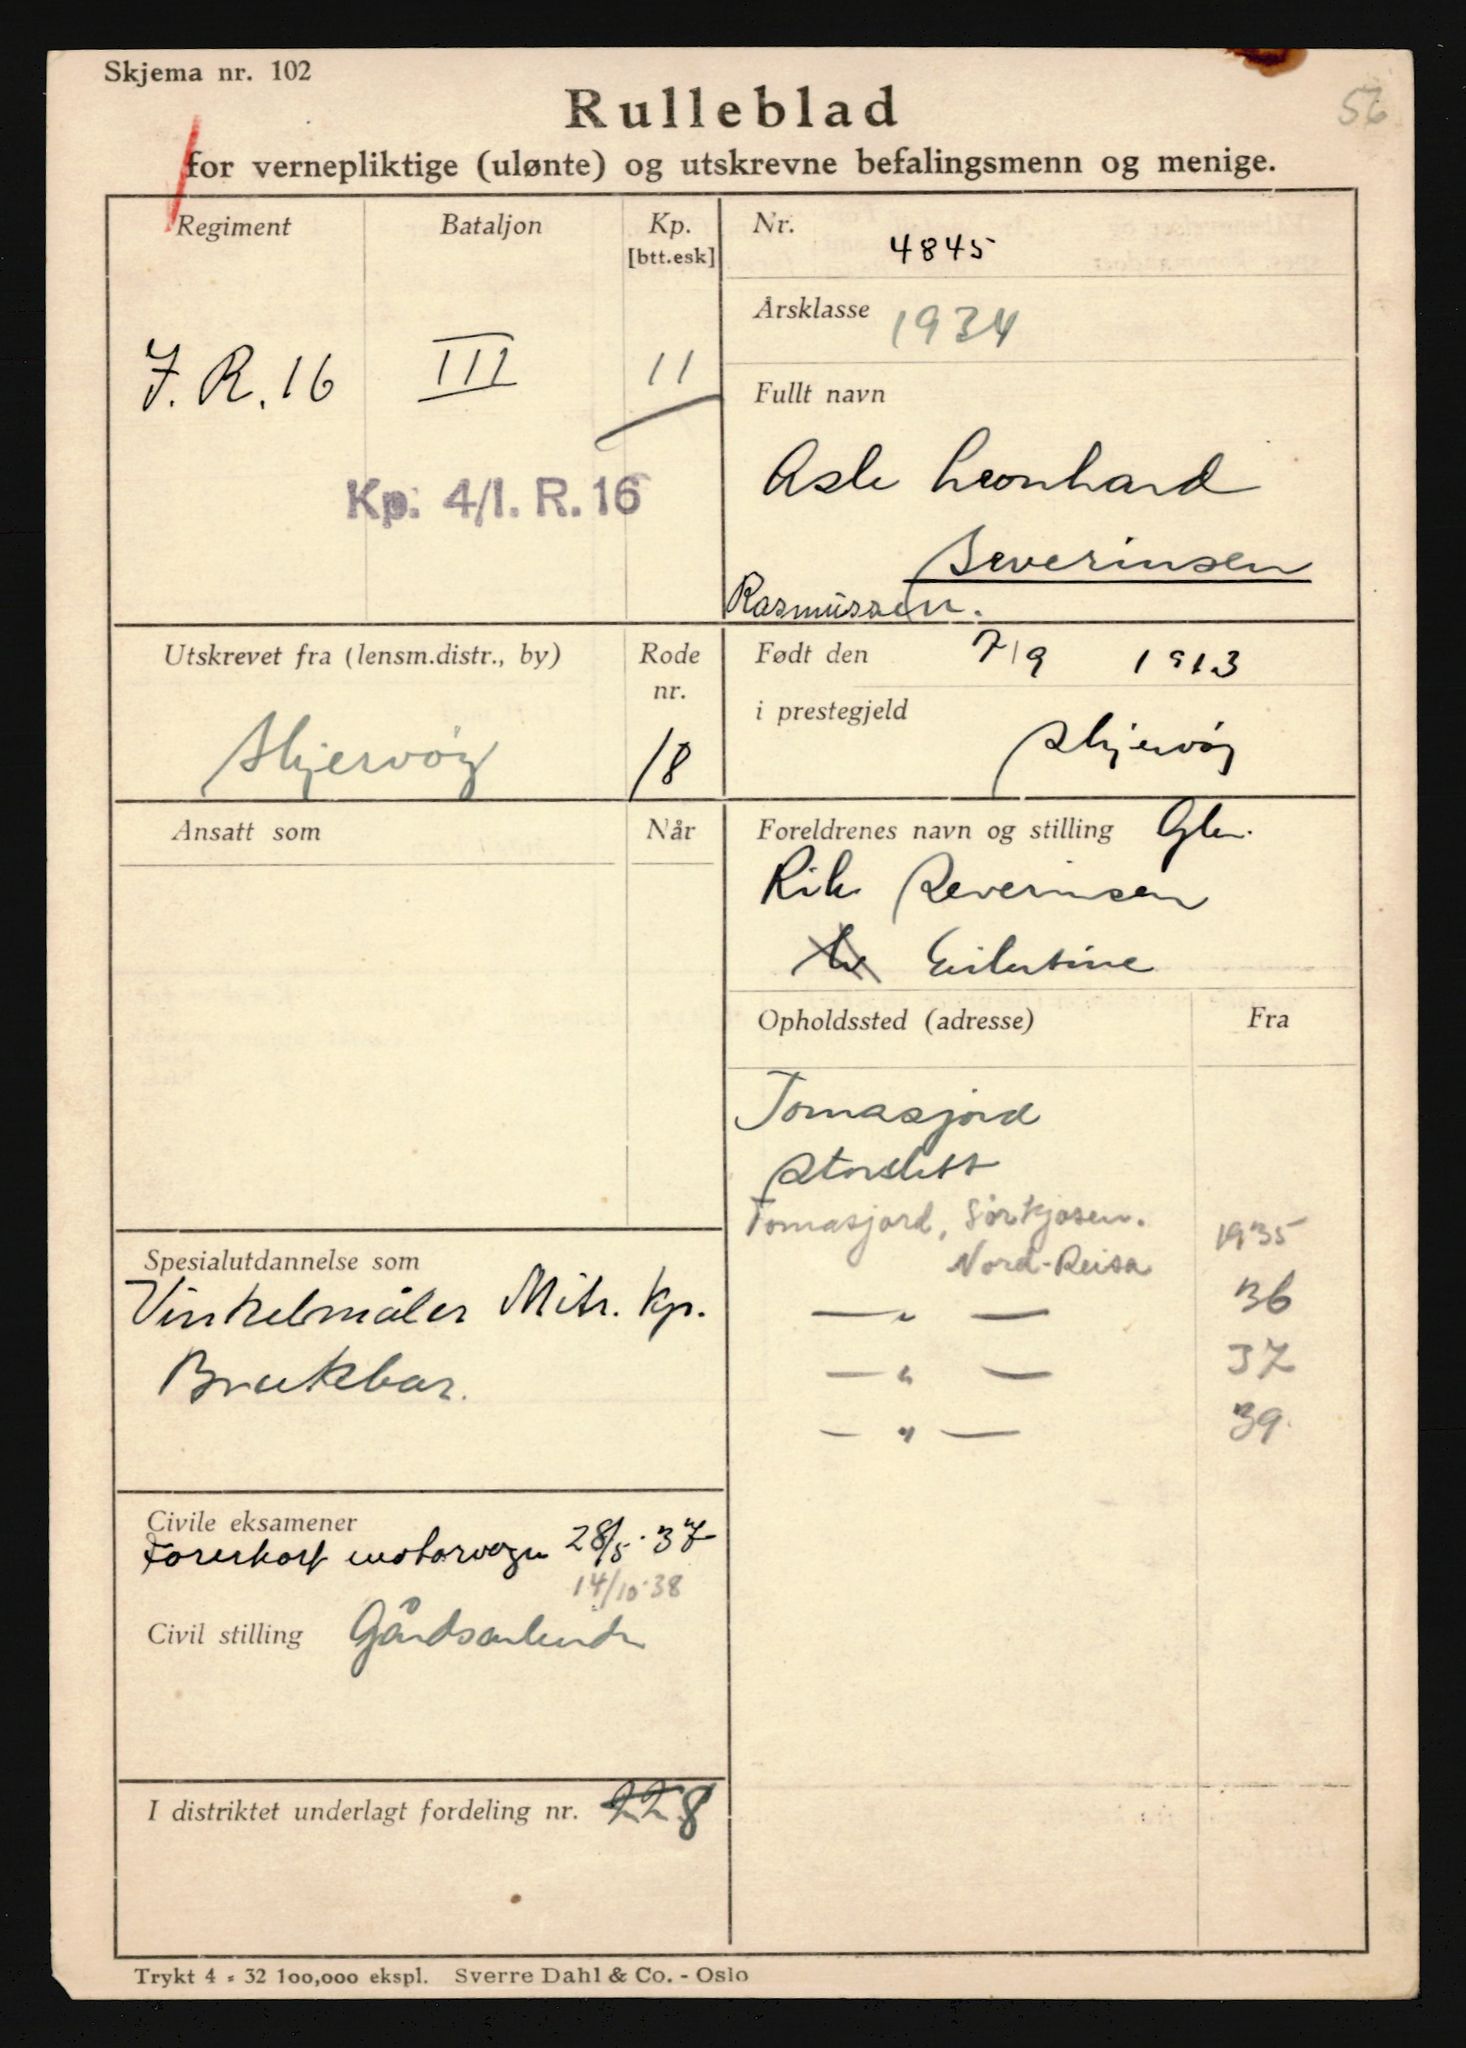 Skjema nr. 102
56
Rulleblad
for vernepliktige (ulønte) og utskrevne befalingsmenn og menige.
Regiment
Bataljon
Kp.
[btt.esk]
J. R. 16
III
11
Kp. 4/I. R. 16
Nr.
4845
Årsklasse
1934
Fullt navn
Asle Leonhard
Severinsen
Rasmussen.
Utskrevet fra (lensm.distr., by)
Rode
nr.
Skjervöy
18
Født den
7/9 1913
i prestegjeld
Skjervöy
Ansatt som
Når
Foreldrenes navn og stilling
Severinsen
Opholdssted (adresse)
Fra
Tomasjord
Storslett
Tomasjord, Sörkjosen. 1935
Nord-Reisa
— " — 36
— " — 37
— " — 39.
Spesialutdannelse som
Vinkelmåler Mitr. Kp.
Brukbar.
Civile eksamener
Førerkort motorvogn 28/5-37
14/10-38
Civil stilling
I distriktet underlagt fordeling nr. 228
Trykt 4 - 32 100,000 ekspl. Sverre Dahl & Co. - Oslo